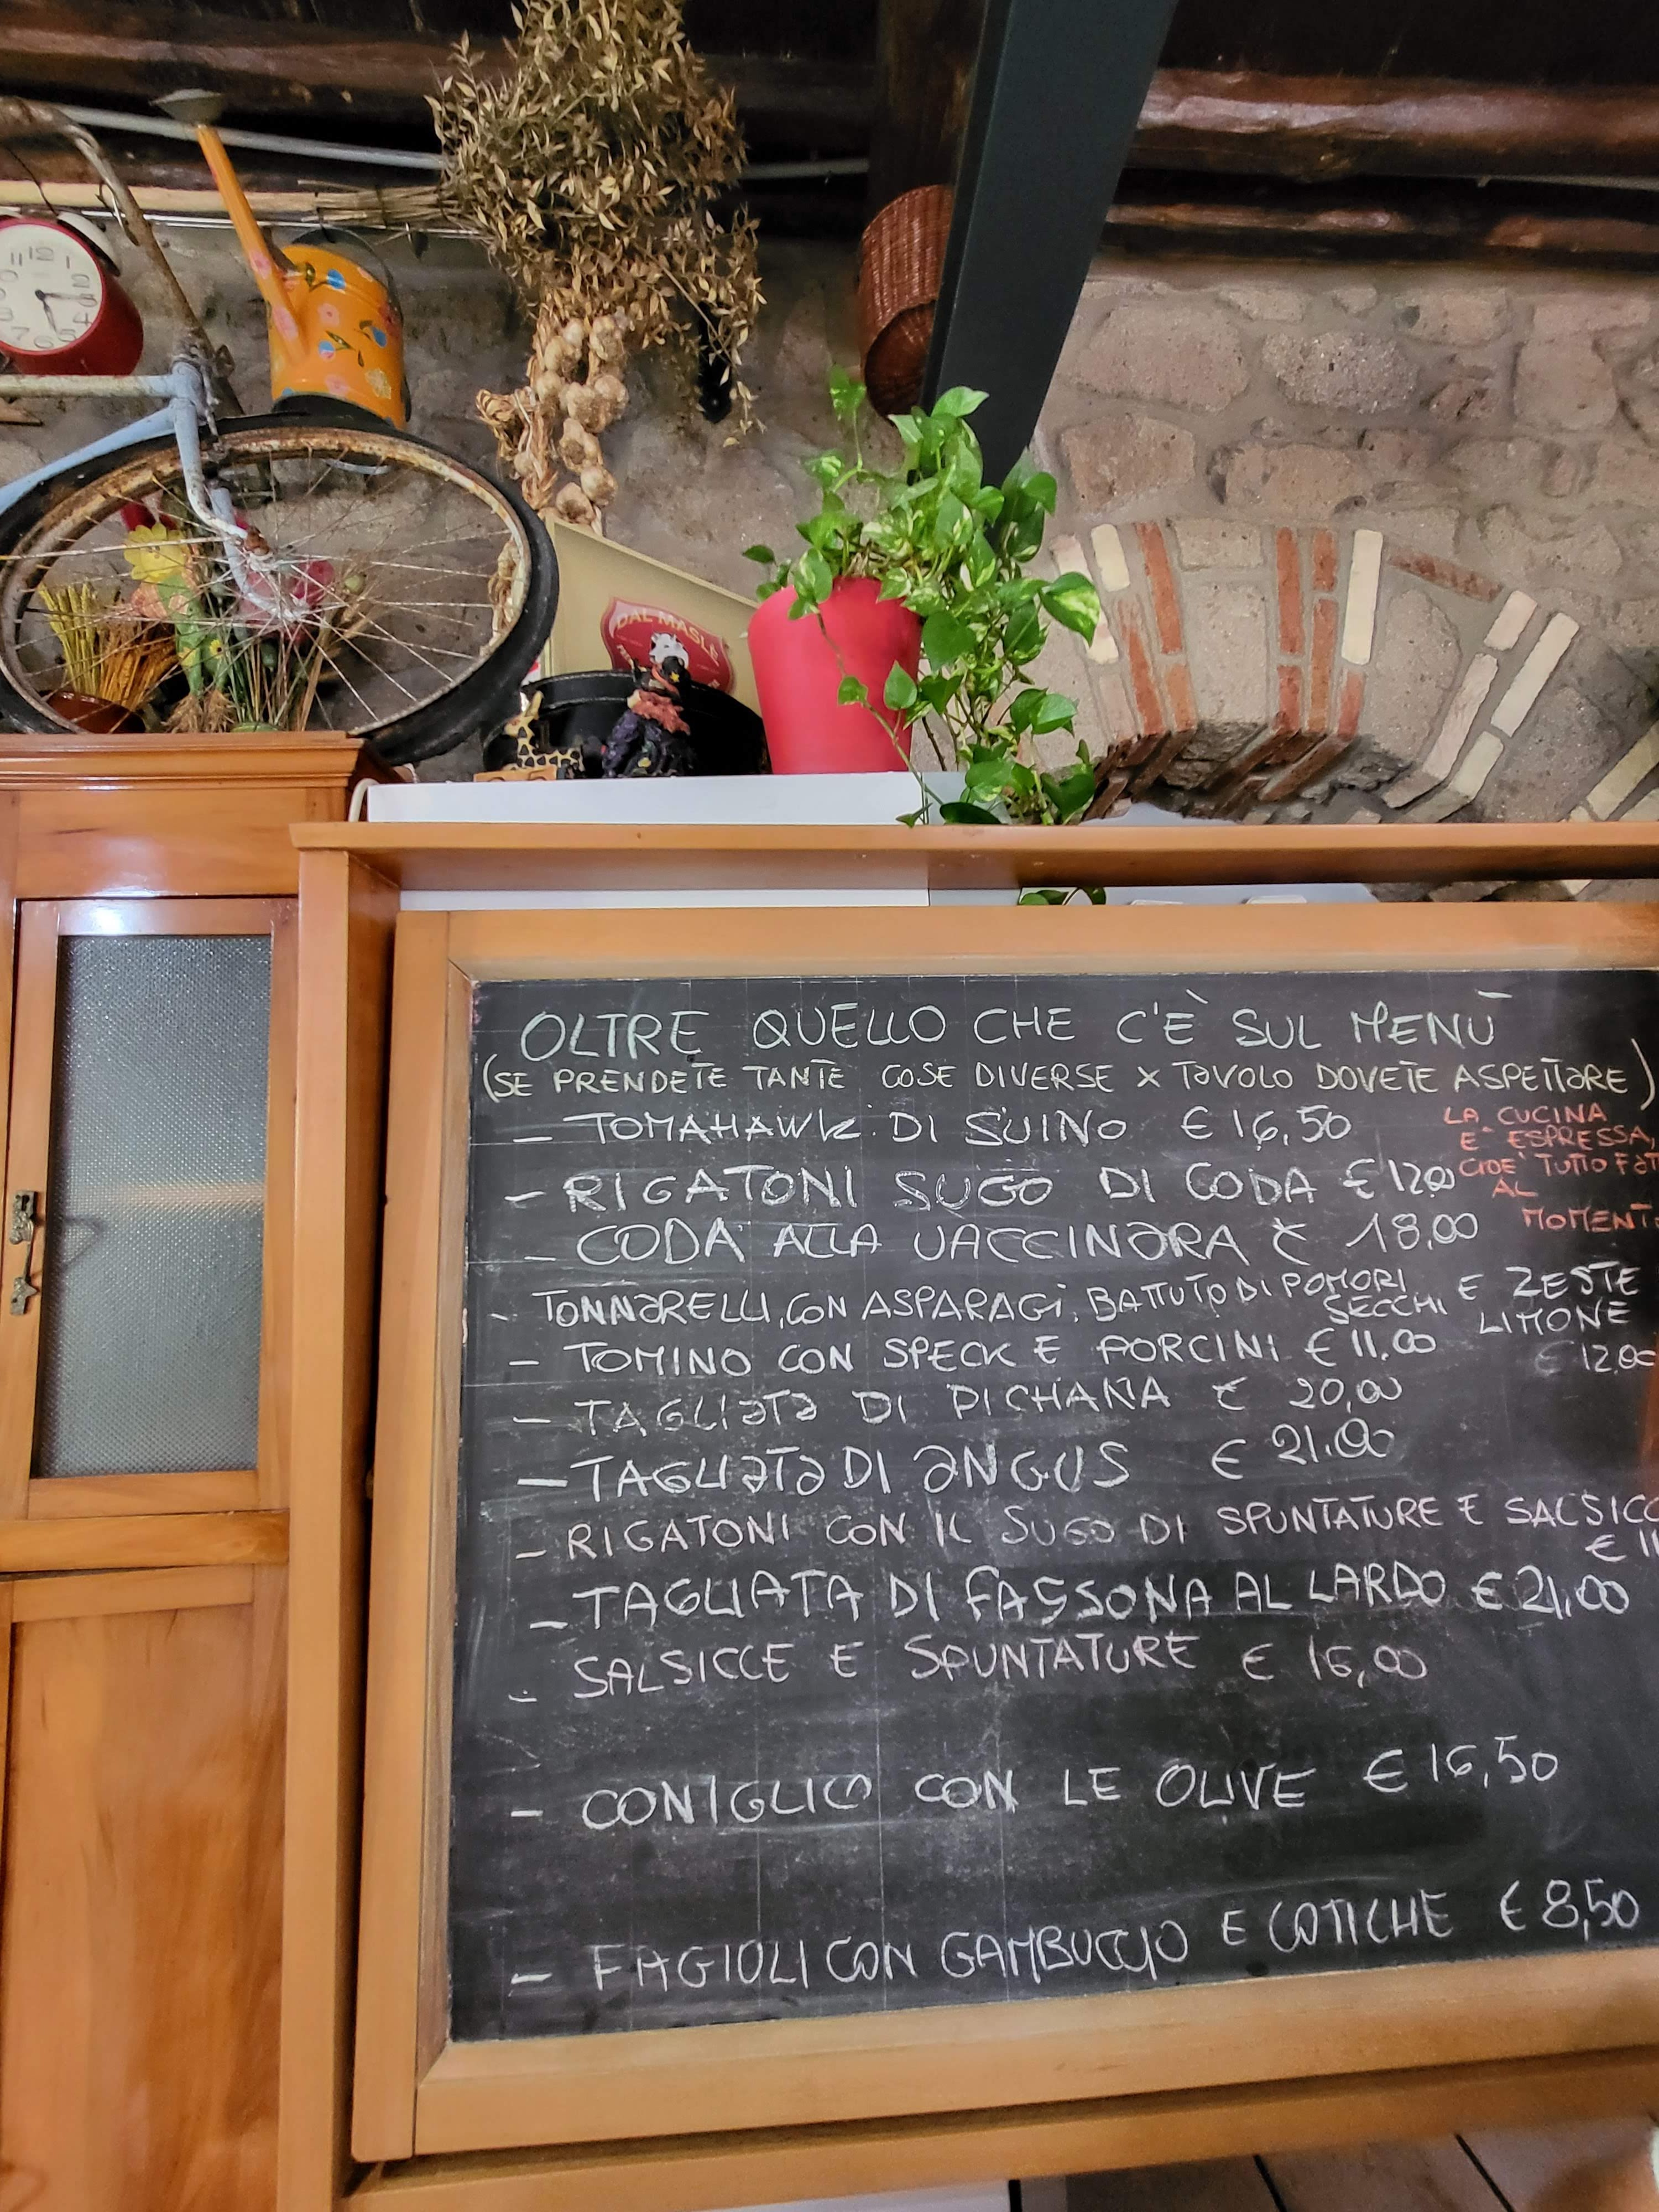 11 12 1
2
3
4
5
6
7
DAL MASI
OLTRE QUELLO CHE C'È SUL MENÙ
(SE PRENDETE TANTE COSE DIVERSE X TAVOLO DOVETE ASPETTARE)
LA CUCINA
E' ESPRESSA,
CIOE' TUTTO FAT
AL
MOMENT
- TOMAHAWK DI SUINO € 16,50
- RIGATONI SUGO DI CODA € 12,00
- CODA ALLA VACCINARA € 18,00
- TONNARELLI CON ASPARAGI, BATTUTO DI POMORI SECCHI E ZESTE
LIMONE
€ 12,00
- TOMINO CON SPECK E PORCINI € 11.00
- TAGLIATA DI PICHANA € 20,00
- TAGLIATA DI ANGUS € 21.00
- RIGATONI CON IL SUGO DI SPUNTATURE E SALSICC
€ 11
- TAGLIATA DI FASSONA AL LARDO € 21,00
- SALSICCE E SPUNTATURE € 16,00
- CONIGLIO CON LE OLIVE € 16,50
- FAGIOLI CON GAMBUCCIO E COTICHE € 8,50